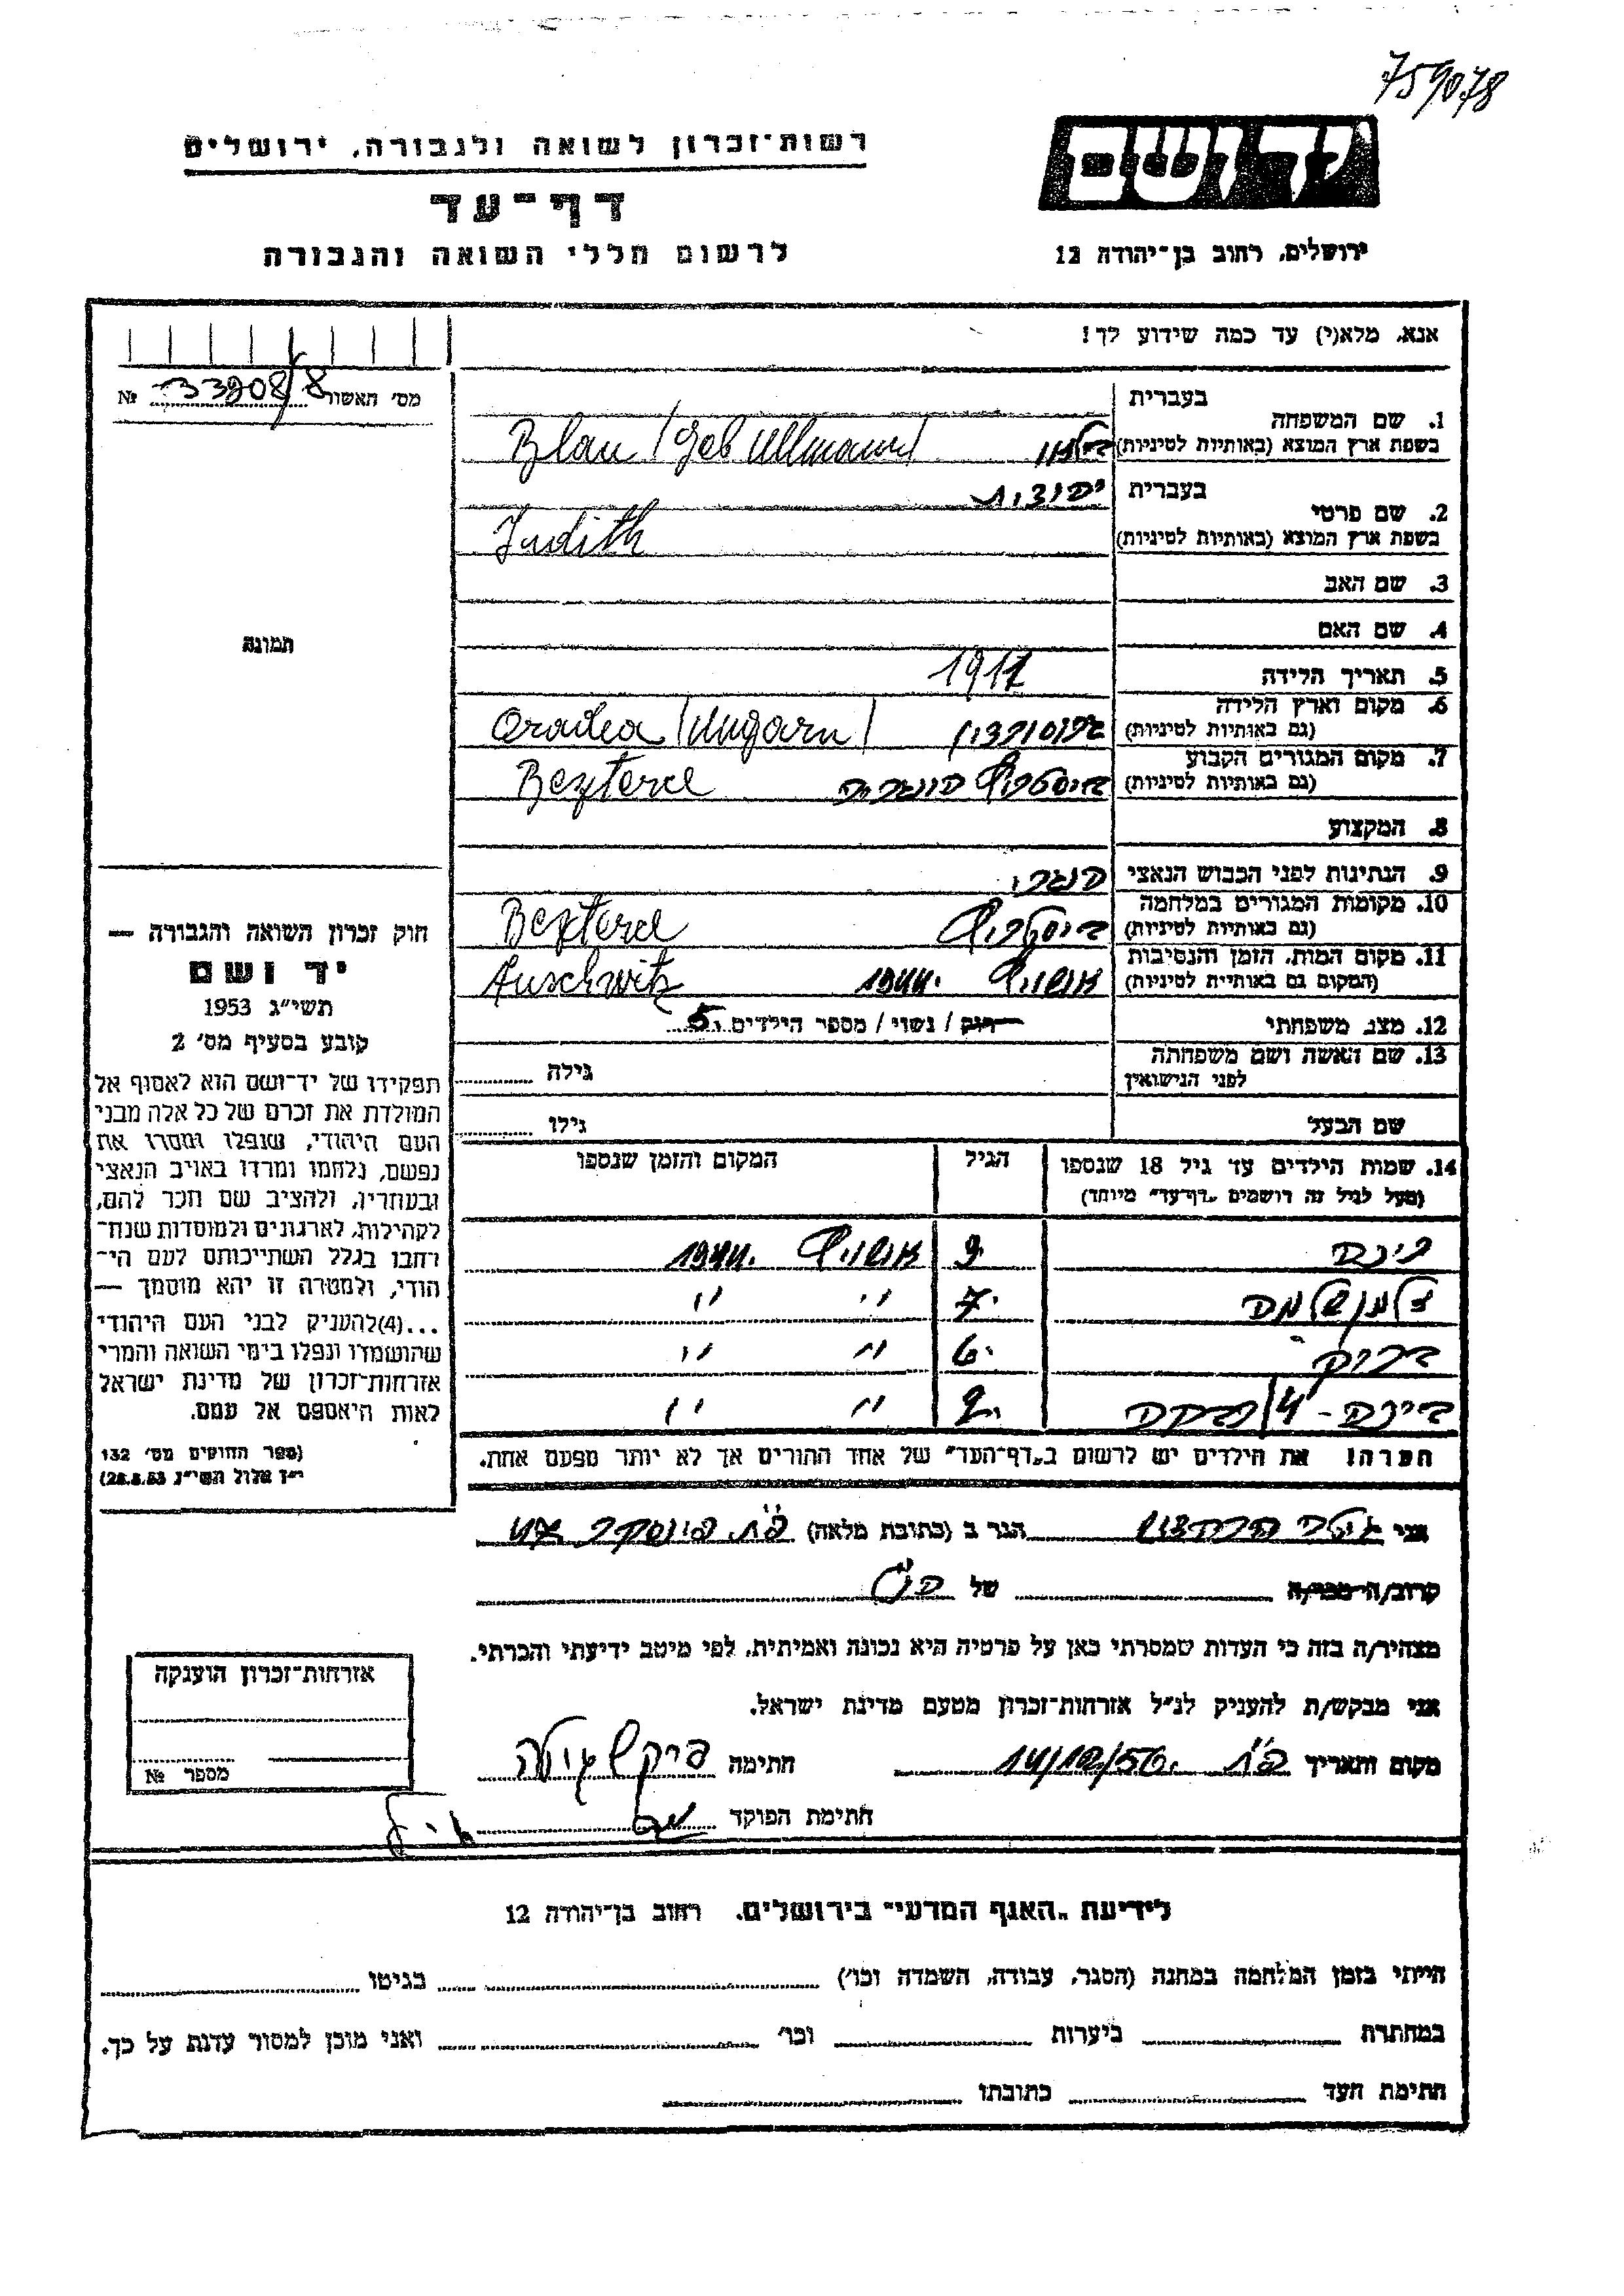 759078
רשות־זכרון לשואה ולגבורה, ירושלים
יד ושם
דף־עד
לרשום חללי השואה והגבורה
ירושלים, רחוב בן־יהודה 12
אנא, מלא(י) עד כמה שידוע לך!
מס' האשור 33908/8 №
בעברית
1. שם המשפחה
בשפת ארץ המוצא (באותיות לטיניות) בלאו Blau (geb Ullmann)
בעברית יהודית
2. שם פרטי
בשפת ארץ המוצא (באותיות לטיניות) Judith
3. שם האב
4. שם האם
תמונה
5. תאריך הלידה 1917
6. מקום וארץ הלידה
(גם באותיות לטיניות) גרוסורדין Oradea (Ungarn)
7. מקום המגורים הקבוע
(גם באותיות לטיניות) ביסטריץ הונגריה Beszterce
8. המקצוע
9. הנתינות לפני הכבוש הנאצי הונגרי
10. מקומות המגורים במלחמה
(גם באותיות לטיניות) ביסטריץ Beszterce
11. מקום המות, הזמן והנסיבות
(המקום גם באותיות לטיניות) אושויץ 1944. Auschwitz
12. מצב משפחתי רוק / נשוי / מספר הילדים 5.
13. שם האשה ושם משפחתה
לפני הנישואין גילה
שם הבעל גילו
14. שמות הילדים עד גיל 18 שנספו
(מעל לגיל זה רושמים "דף־עד" מיוחד)
הגיל
המקום והזמן שנספו
פינה 9. אושויץ 1944.
זלמן שלמה 7. " "
ברוך 6. " "
בינה - 4 / רבקה 2. " "
הערה! את הילדים יש לרשום ב"דף־העד" של אחד ההורים אך לא יותר מפעם אחת.
חוק זכרון השואה והגבורה —
יד ושם
תשי"ג 1953
קובע בסעיף מס' 2
תפקידו של יד־ושם הוא לאסוף אל
המולדת את זכרם של כל אלה מבני
העם היהודי, שנפלו ומסרו את
נפשם, נלחמו ומרדו באויב הנאצי
ובעוזריו, ולהציב שם וזכר להם,
לקהילות, לארגונים ולמוסדות שנח־
רבו בגלל השתייכותם לעם הי־
הודי, ולמטרה זו יהא מוסמך —
...(4)להעניק לבני העם היהודי
שהושמדו ונפלו בימי השואה והמרי
אזרחות־זכרון של מדינת ישראל
לאות היאספם אל עמם.
(ספר החוקים מס' 132
י"ז אלול תשי"ג 28.8.53)
אני הגר ב (כתובת מלאה) פ"ת
קרוב/ה מכר/ה של הנ"ל
מצהיר/ה בזה כי העדות שמסרתי כאן על פרטיה היא נכונה ואמיתית, לפי מיטב ידיעתי והכרתי.
אני מבקש/ת להעניק לנ"ל אזרחות־זכרון מטעם מדינת ישראל.
מקום ותאריך פ"ת 14/12/56. חתימה
חתימת הפוקד
אזרחות־זכרון הוענקה
מספר №
לידיעת "האגף המדעי" בירושלים, רחוב בן־יהודה 12
הייתי בזמן המלחמה במחנה (הסגר, עבודה, השמדה וכו') בגיטו
במחתרת ביערות וכו' ואני מוכן למסור עדות על כך.
חתימת העד כתובתו